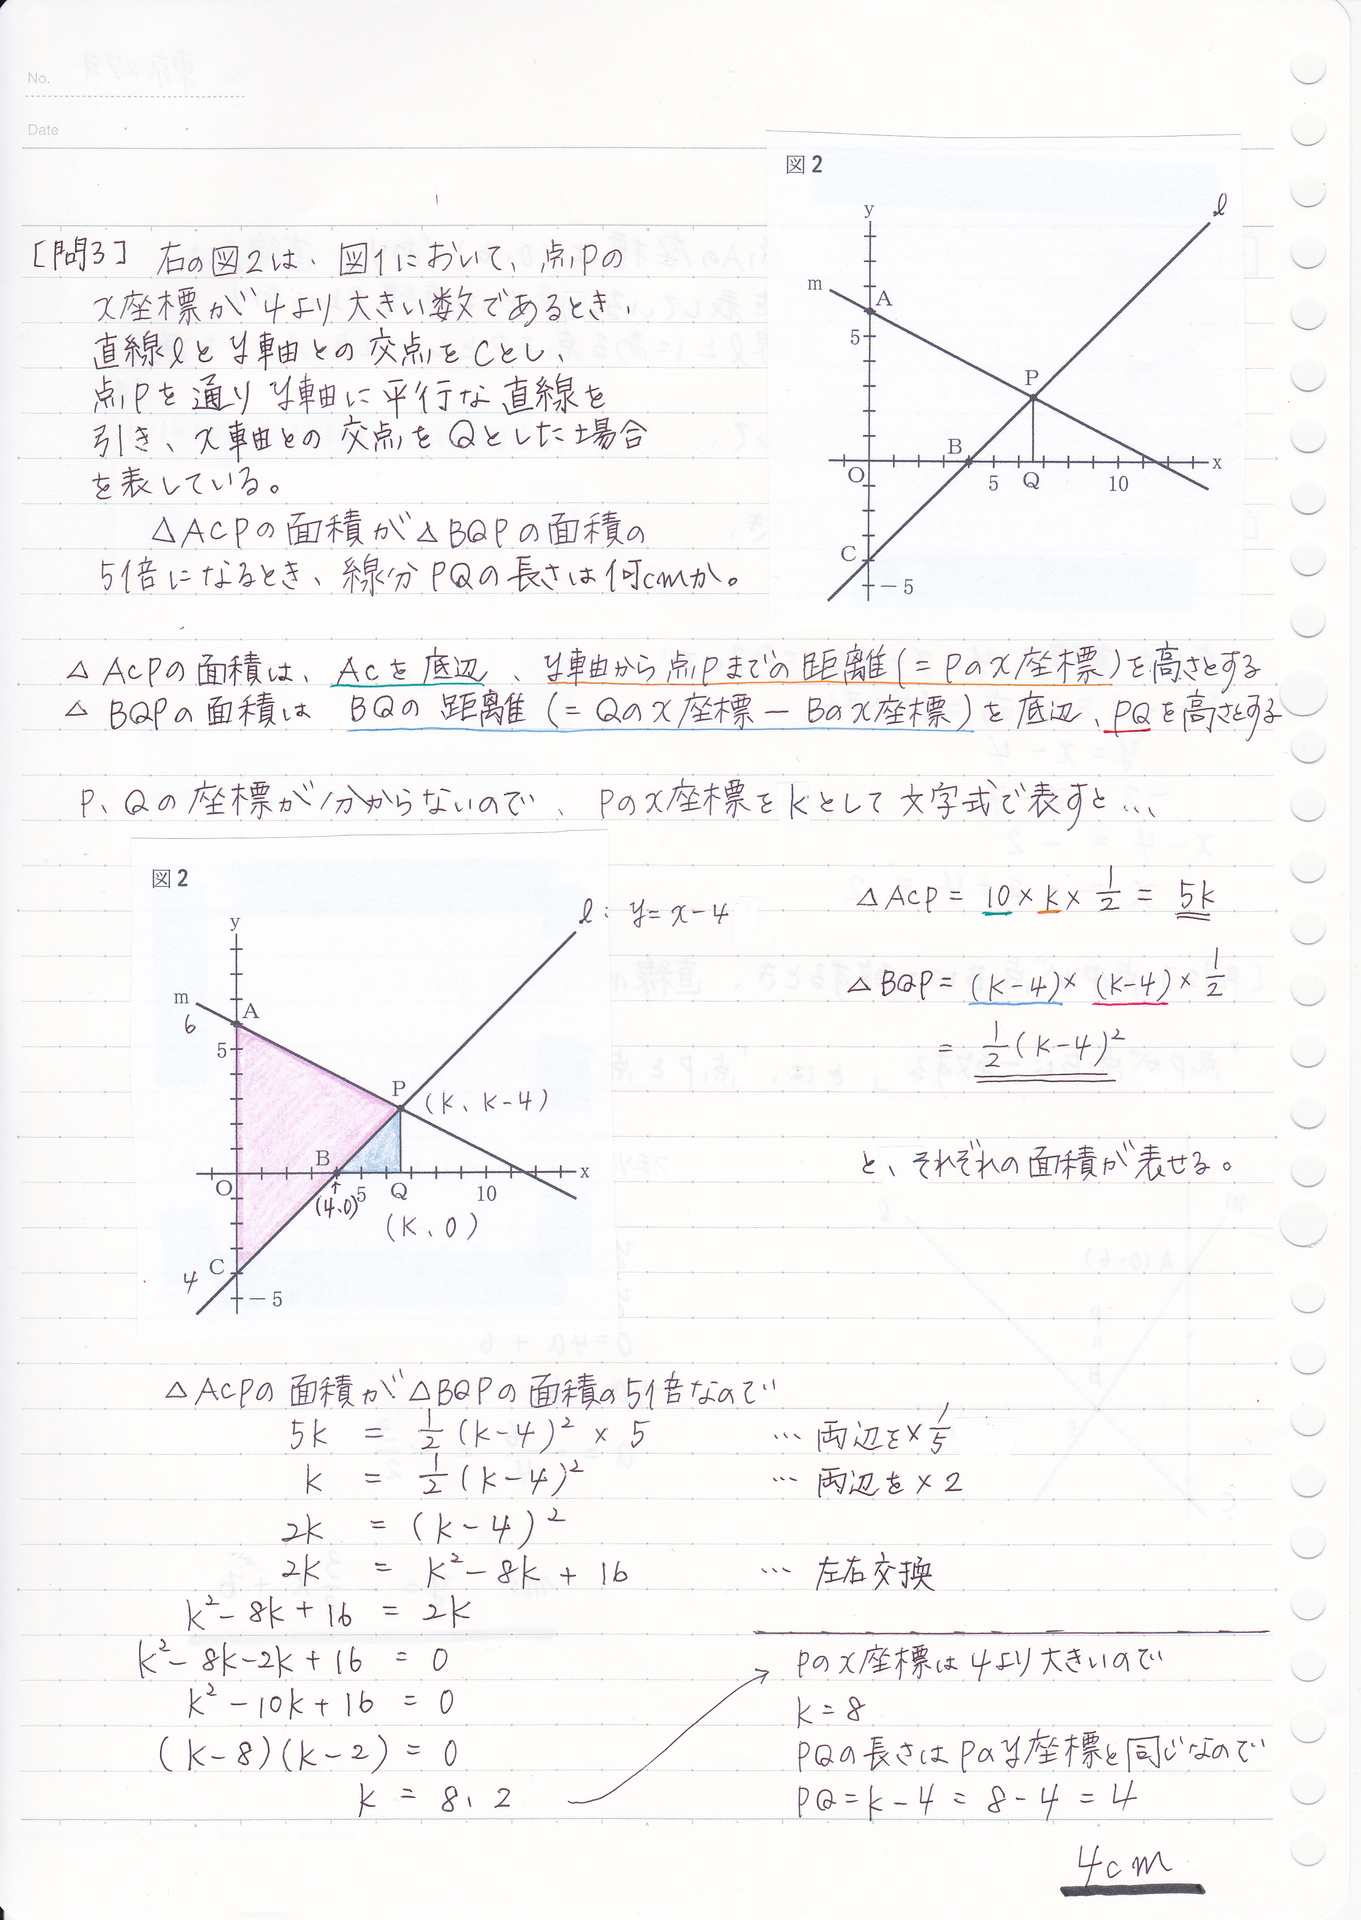 No.
Date
図2
y
ℓ
m
A
5
P
B
O
5
Q
10
x
C
-5
[問3] 右の図2は、図1において、点Pの
x座標が4より大きい数であるとき、
直線ℓとy軸との交点をCとし、
点Pを通りy軸に平行な直線を
引き、x軸との交点をQとした場合
を表している。
△ACPの面積が△BQPの面積の
5倍になるとき、線分PQの長さは何cmか。
△ACPの面積は、ACを底辺、y軸から点Pまでの距離(=Pのx座標)を高さとする
△BQPの面積は BQの距離(=Qのx座標-Bのx座標)を底辺、PQを高さとする
P、Qの座標が分からないので、Pのx座標をkとして文字式で表すと…
図2
y
ℓ: y=x-4
m
6
A
5
P
(k、k-4)
B
O
(4、0)
5
Q
10
x
(k、0)
C
4
-5
△ACP = 10×k×1/2 = 5k
△BQP = (k-4)×(k-4)×1/2
= 1/2(k-4)²
と、それぞれの面積が表せる。
△ACPの面積が△BQPの面積の5倍なので
5k = 1/2(k-4)²×5 …両辺を×1/5
k = 1/2(k-4)² …両辺を×2
2k = (k-4)²
2k = k²-8k+16 …左右交換
k²-8k+16 = 2k
k²-8k-2k+16 = 0
k²-10k+16 = 0
(k-8)(k-2) = 0
k = 8、2
Pのx座標は4より大きいので
k=8
PQの長さはPのy座標と同じなので
PQ=k-4=8-4=4
4cm